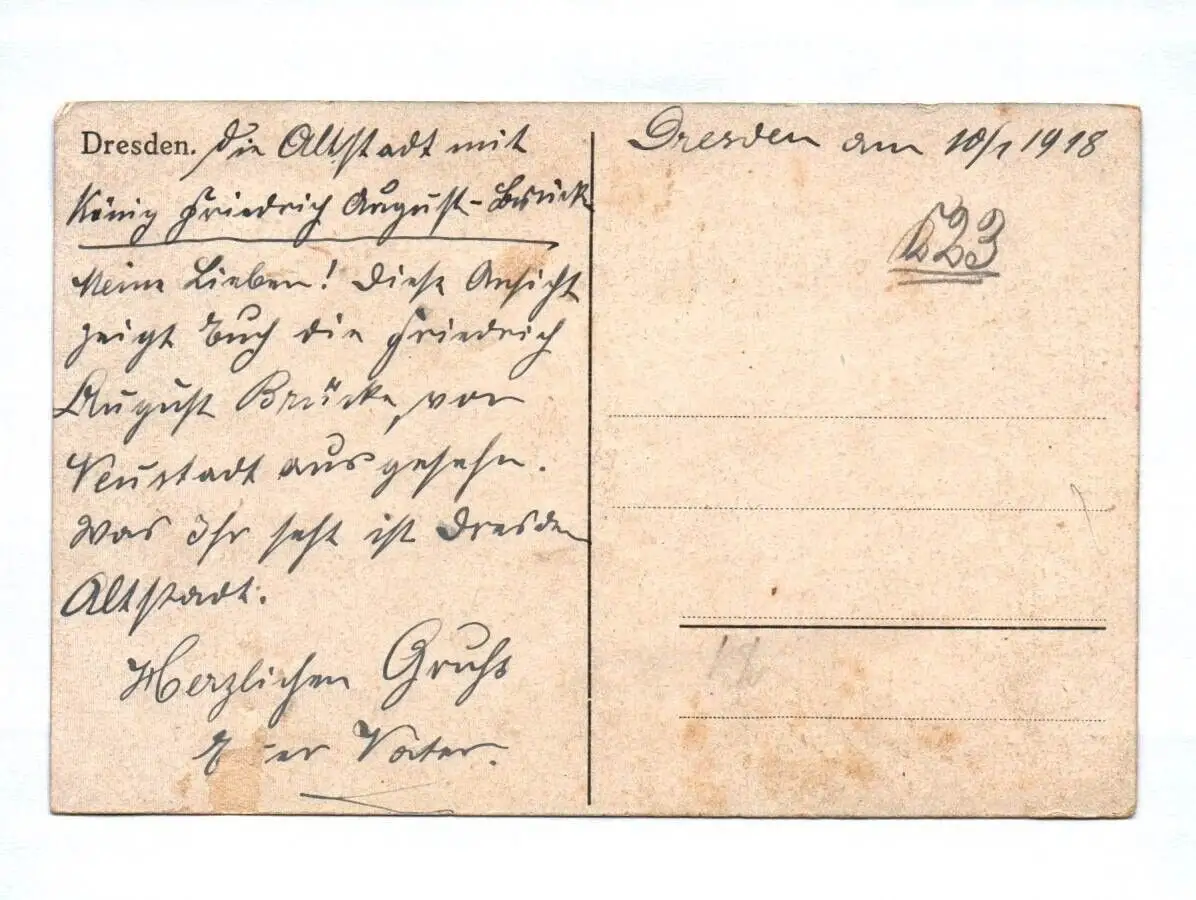 Dresden. Die Altstadt mit
König Friedrich August-Brück
Meine Lieben! Diese Ansicht
zeigt Euch die Friedrich
August Brücke, von
Neustadt aus gesehn.
Was Ihr seht ist Dresden
Altstadt.
Herzlichen Gruß
Vater.
Dresden am 10/1 1918
523